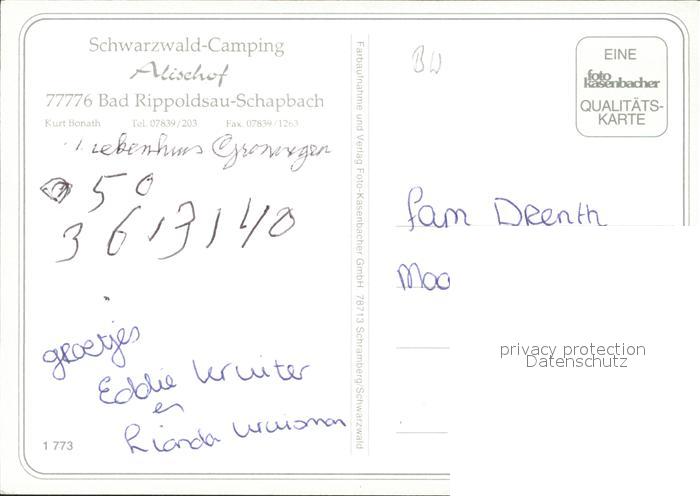 Schwarzwald-Camping
Alischof
77776 Bad Rippoldsau-Schapbach
Kurt Bonath Tel. 07839/203 Fax. 07839/1263
Groningen
50
3613140
groetjes
Eddie Kruiter
en
Rianda
1 773
Farbaufnahme und Verlag Foto-Kasenbacher GmbH 78713 Schramberg/Schwarzwald
BW
EINE
foto
kasenbacher
QUALITÄTS-
KARTE
fam Drenth
Moo
privacy protection
Datenschutz